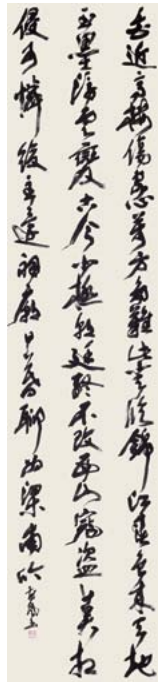 花近高樓傷客心萬方多難此登臨錦江春色來天地
玉壘浮雲變古今北極朝廷終不改西山寇盜莫相
侵可憐後主還祠廟日暮聊為梁甫吟